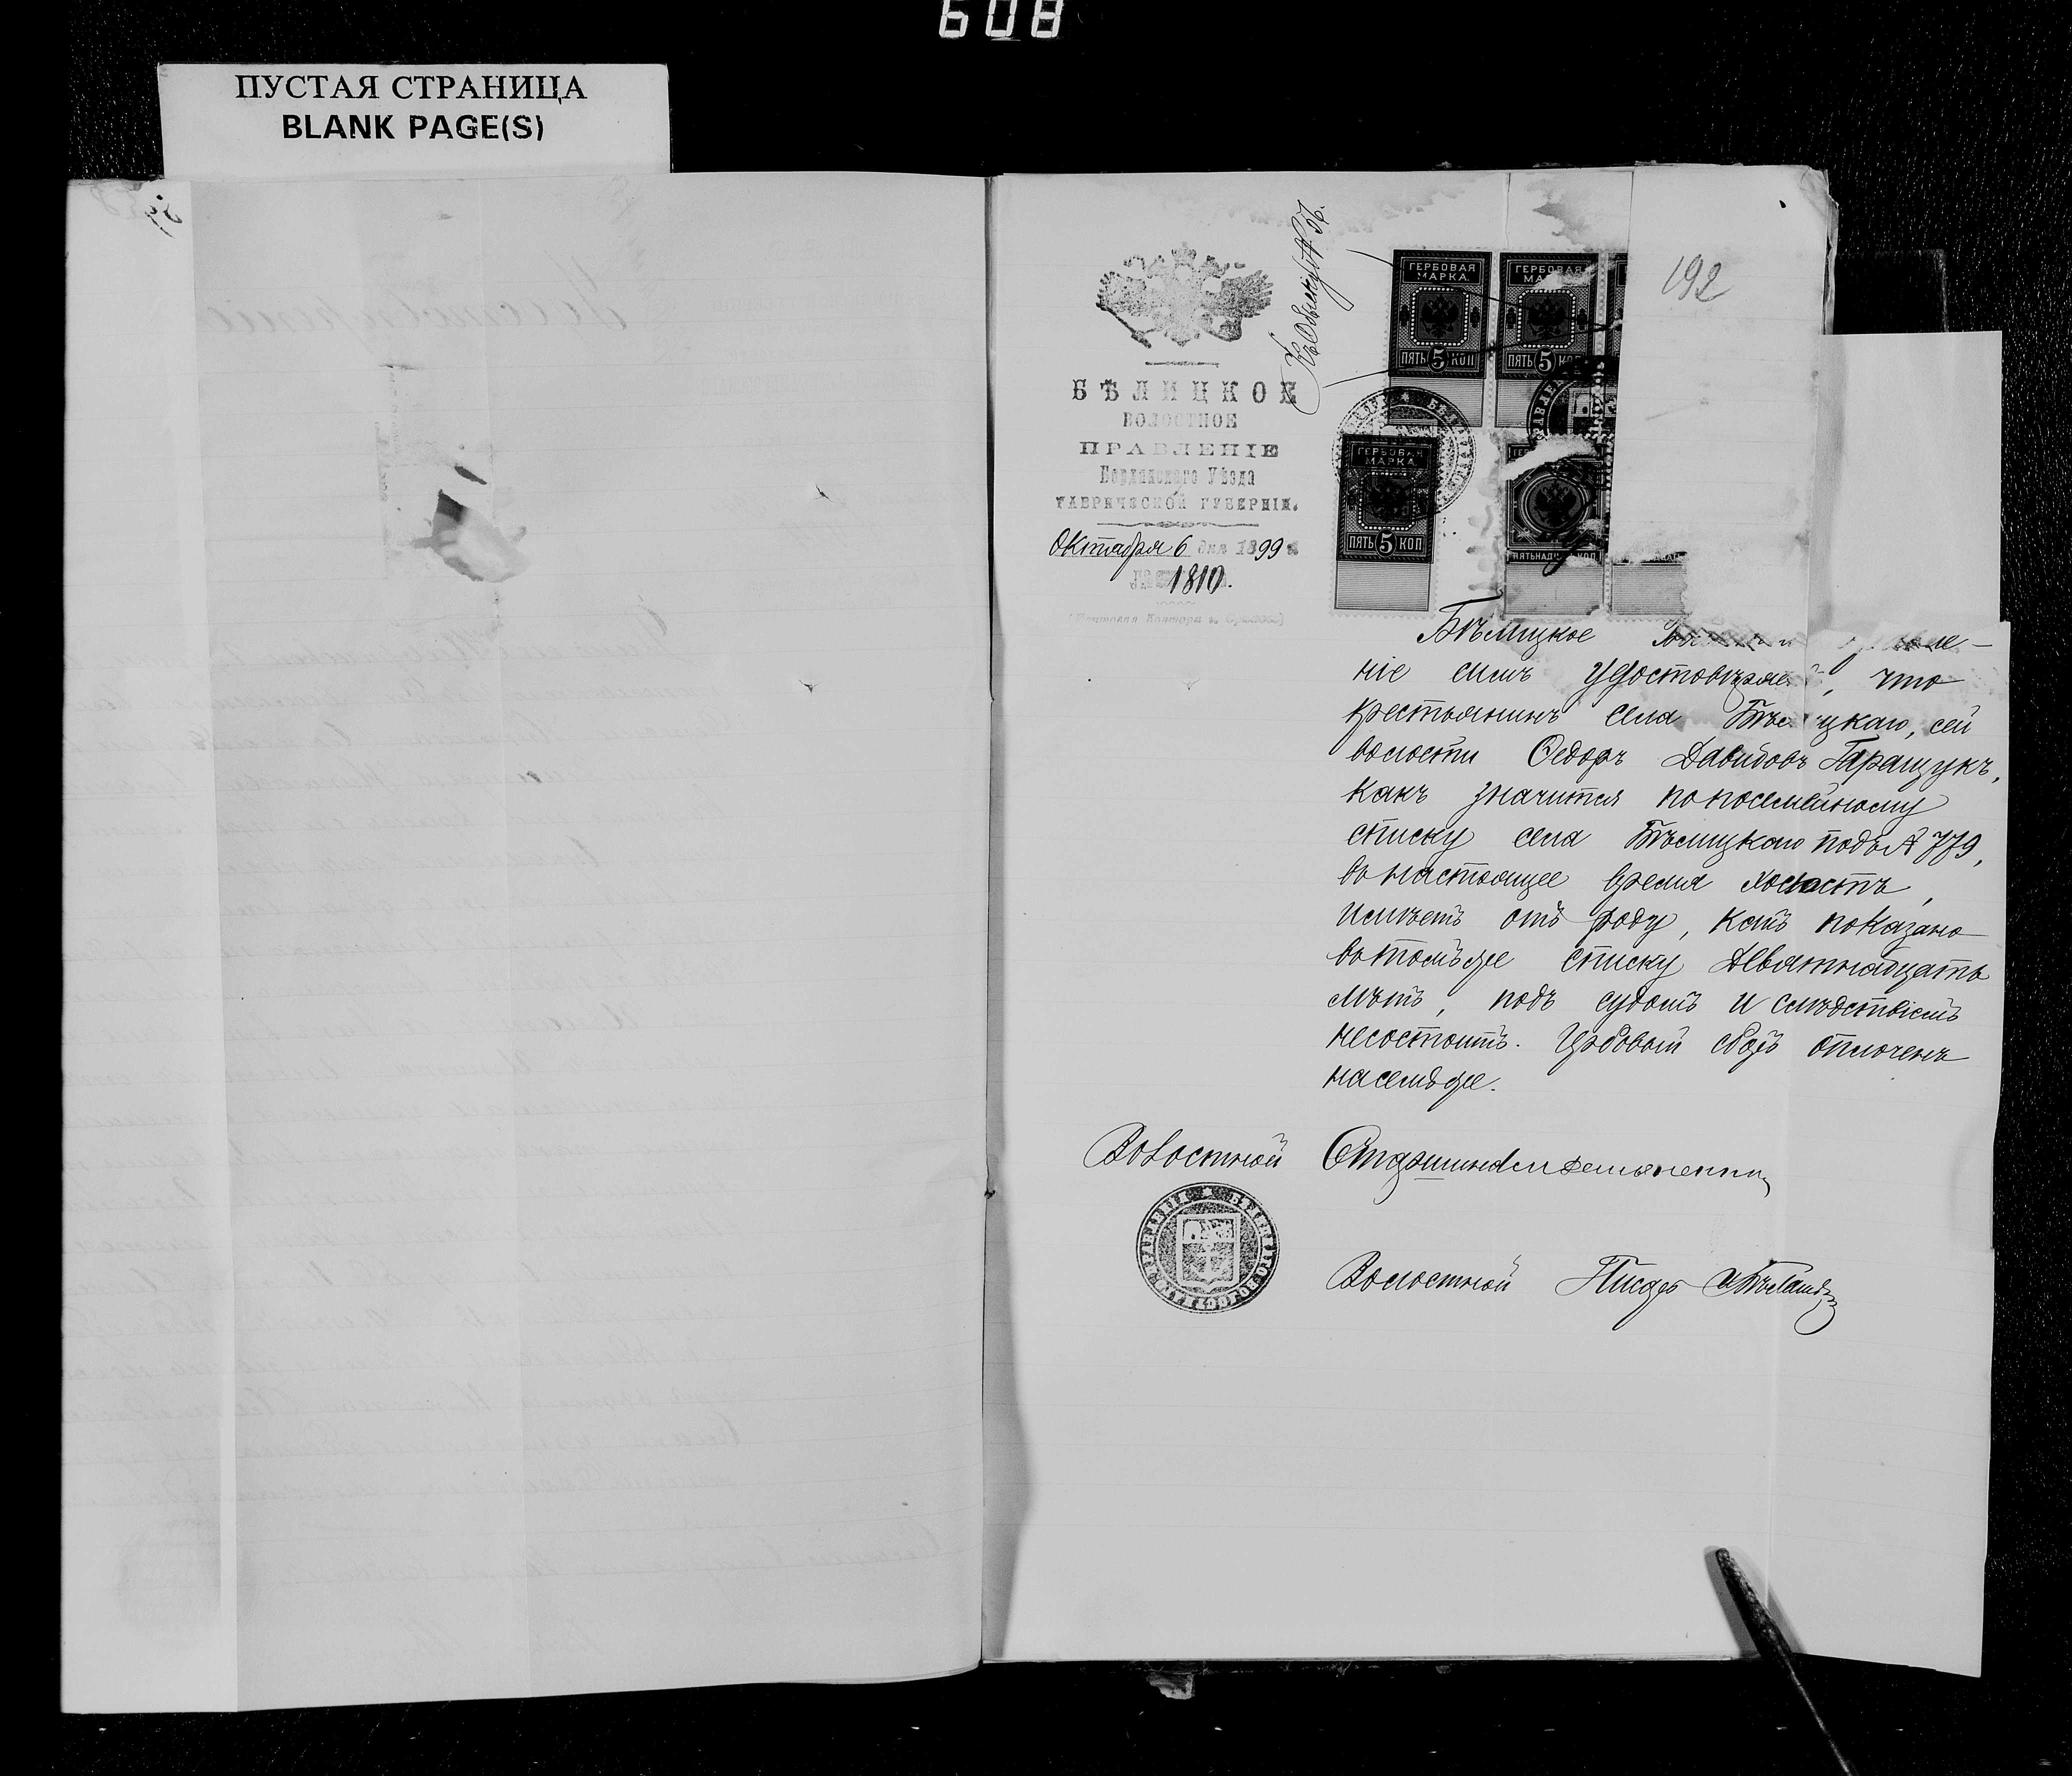 608
ПУСТАЯ СТРАНИЦА
BLANK PAGE(S)
192
Къ обыску № 56.
БѢЛИЦКОЕ
ВОЛОСТНОЕ
ПРАВЛЕНІЕ
Бердянскаго Уѣзда
ТАВРИЧЕСКОЙ ГУБЕРНІИ.
Октября 6 дня 1899 г.
№ 1810.
ГЕРБОВАЯ МАРКА
ПЯТЬ 5 КОП
ГЕРБОВАЯ МАРКА
ПЯТЬ 5 КОП
ГЕРБОВАЯ МАРКА
ПЯТЬ 5 КОП
ПЯТЬНАДЦ КОП
Бѣлицкое
ніе симъ удостовѣряе, что
крестьянинъ села Бѣлицкаго, сей
волости Ѳедоръ Давидовъ Гаращукъ,
какъ значится по посемейному
списку села Бѣлицкаго подъ № 779,
въ настоящее время холостъ,
имѣетъ отъ роду, какъ показано
въ томъ же списку девятнадцать
лѣтъ, подъ судомъ и слѣдствіемъ
не состоитъ. Гербовый сборъ оплоченъ
на семъ же.
Волостной Старшина
Волостной Писарь